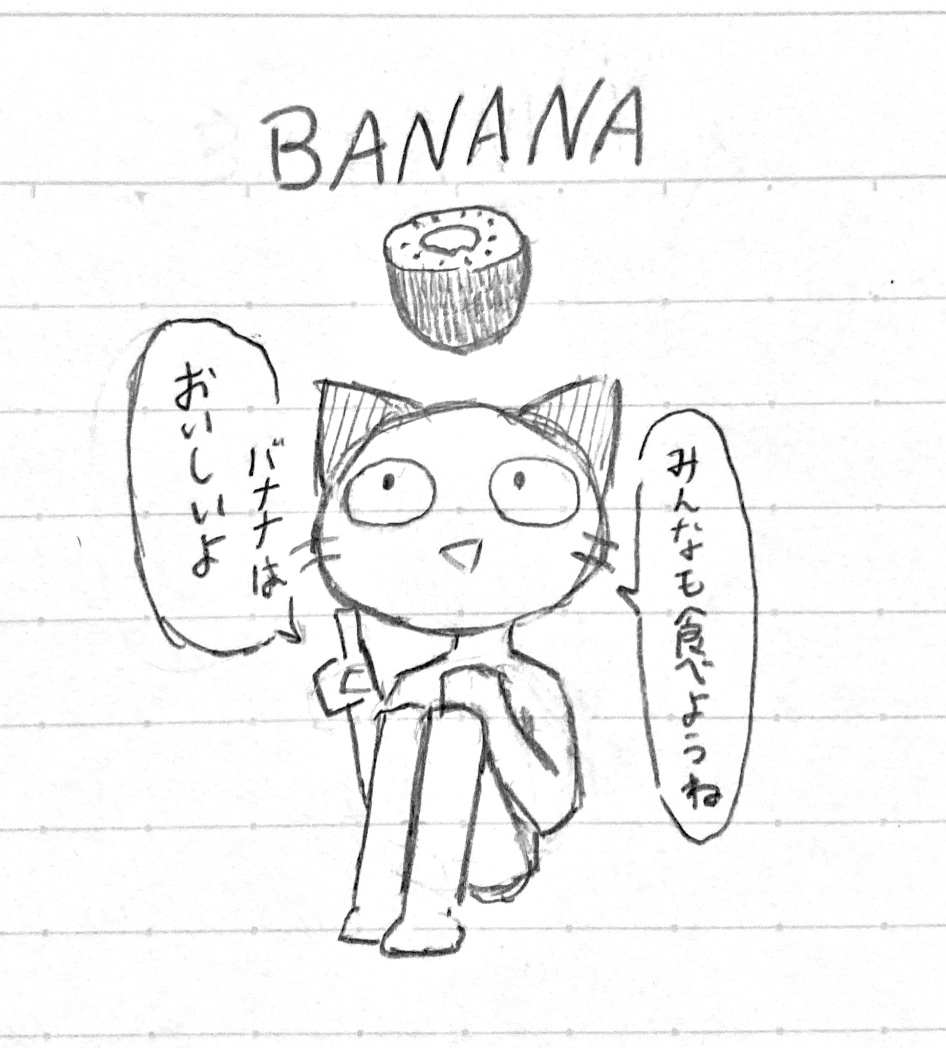 BANANA
みんなも食べようね
バナナは
おいしいよ